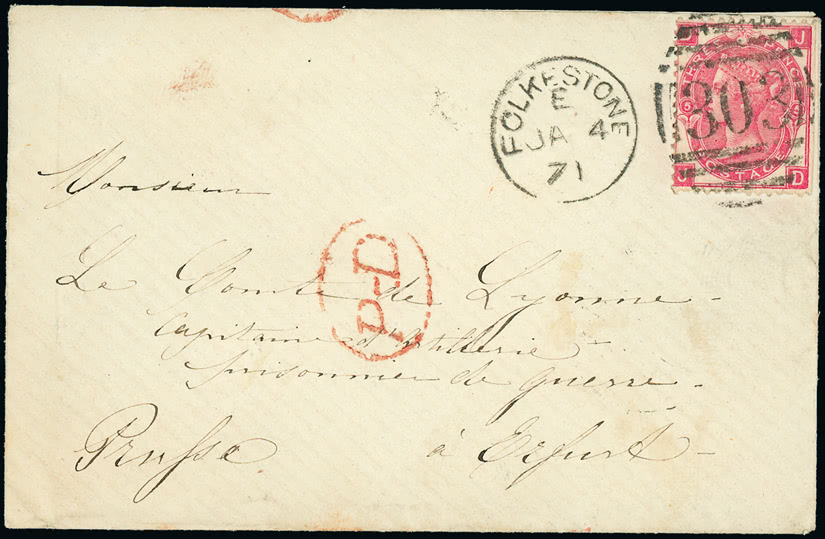 FOLKESTONE
E
JA 4
71
J J
THREE PENCE
303
POSTAGE
J D
Monsieur
P-D
Le Comte de Lyonne -
Capitaine d'Artillerie -
prisonnier de guerre -
Prusse à Erfurt -